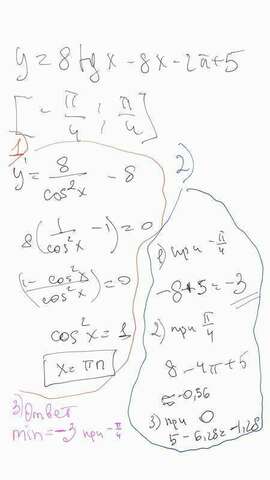 y = 8 tg x - 8x - 2π + 5
[ - π/4 ; π/4 ]
1)
y' = 8/cos²x - 8
8 ( 1/cos²x - 1 ) = 0
( (1 - cos²x)/cos²x ) = 0
cos²x = 1
x = πn
2)
1) при - π/4
-8 + 5 = -3
2) при π/4
8 - 4π + 5
≈ -0,56
3) при 0
5 - 6,28 = -1,28
3) Ответ
min = -3 при - π/4